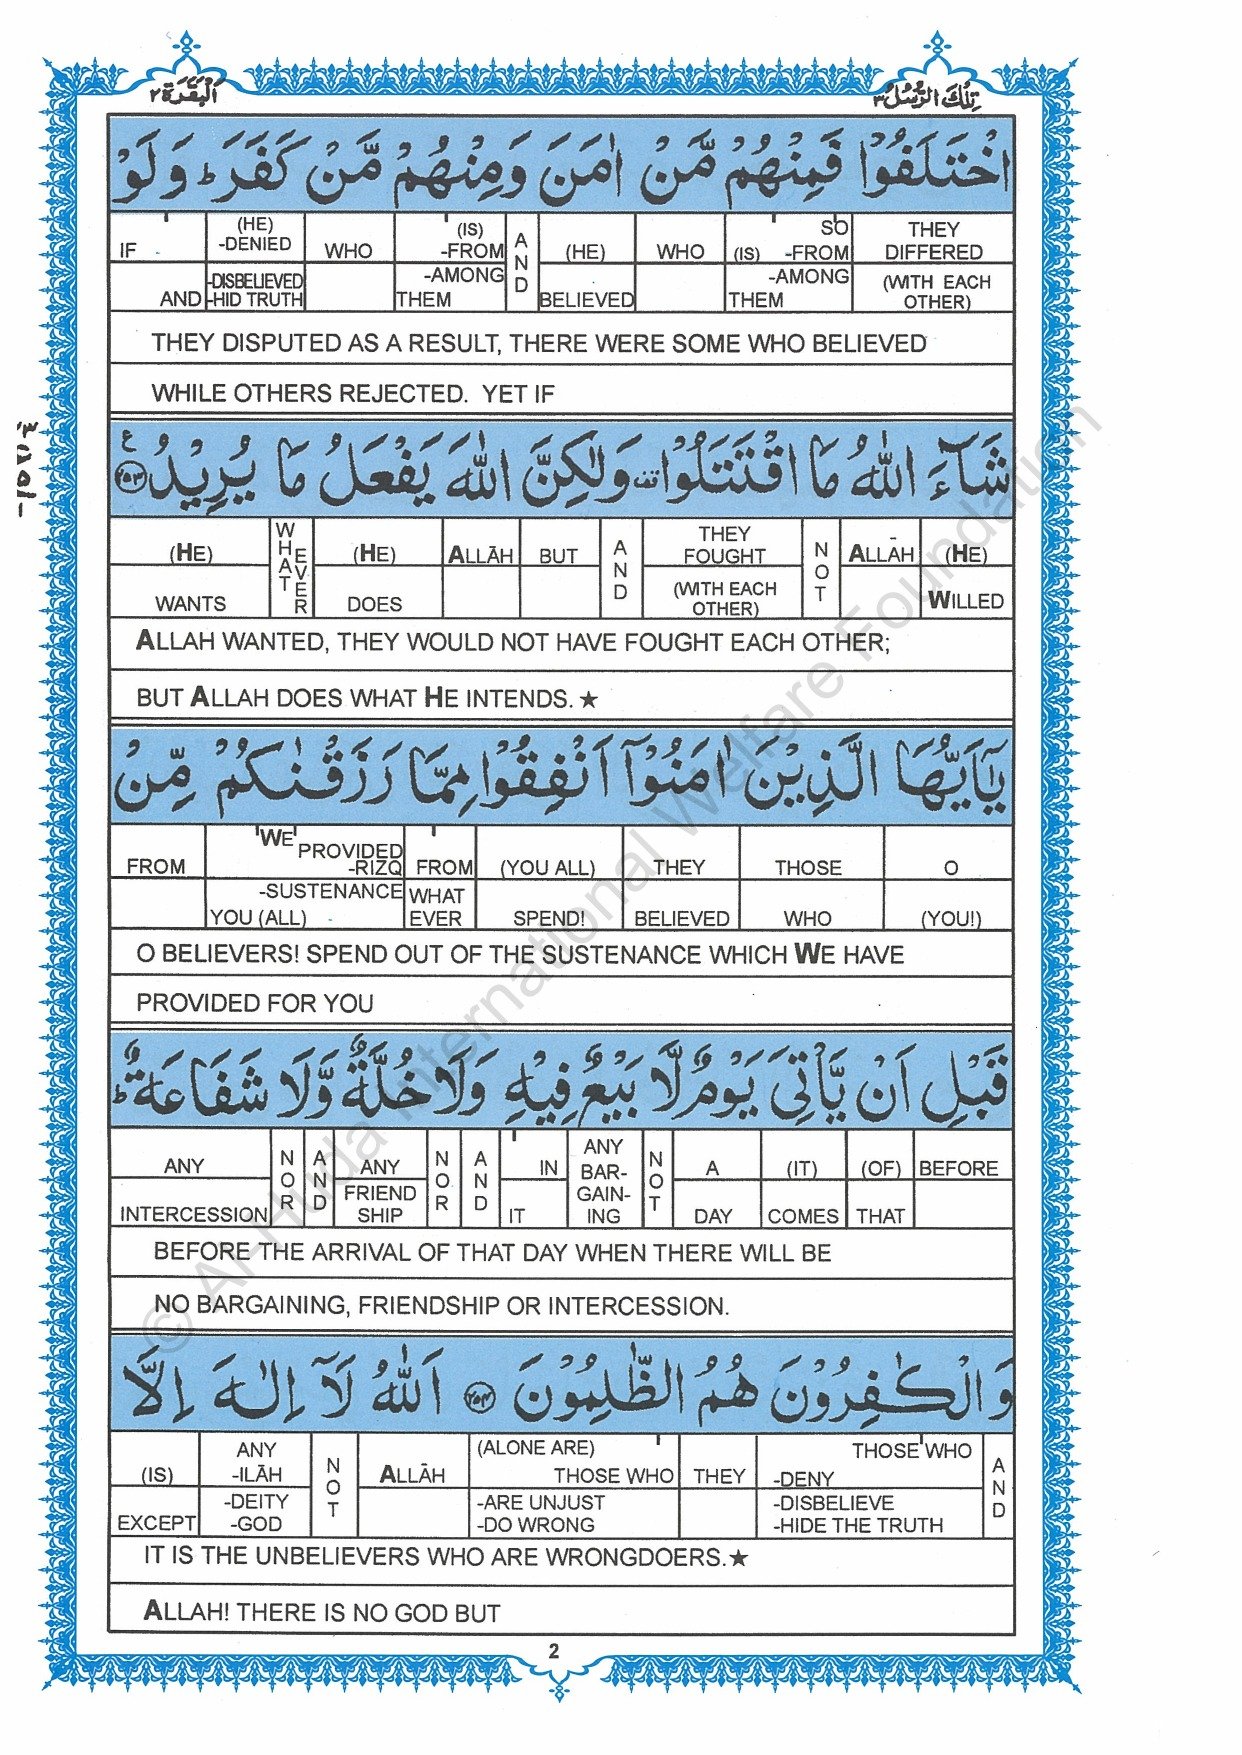 اَلْبَقَرَة ٢
تِلْكَ الرُّسُلُ ٣
اخْتَلَفُوْا فَمِنْهُمْ مَّنْ اٰمَنَ وَمِنْهُمْ مَّنْ كَفَرَ ؕ وَلَوْ
IF (HE) -DENIED WHO (IS) -FROM AND (HE) WHO (IS) SO -FROM THEY DIFFERED
AND -DISBELIEVED -HID TRUTH -AMONG THEM BELIEVED -AMONG THEM (WITH EACH OTHER)
THEY DISPUTED AS A RESULT, THERE WERE SOME WHO BELIEVED
WHILE OTHERS REJECTED. YET IF
شَآءَ اللّٰهُ مَا اقْتَتَلُوْا ۫ وَلٰكِنَّ اللّٰهَ يَفْعَلُ مَا يُرِيْدُ ﴿٢٥٣﴾ ع
(HE) WHATEVER (HE) ALLĀH BUT AND THEY FOUGHT NOT ALLĀH (HE)
WANTS DOES (WITH EACH OTHER) WILLED
ALLAH WANTED, THEY WOULD NOT HAVE FOUGHT EACH OTHER;
BUT ALLAH DOES WHAT HE INTENDS. ★
يٰۤاَيُّهَا الَّذِيْنَ اٰمَنُوْۤا اَنْفِقُوْا مِمَّا رَزَقْنٰكُمْ مِّنْ
FROM 'WE' PROVIDED -RIZQ FROM (YOU ALL) THEY THOSE O
-SUSTENANCE YOU (ALL) WHAT EVER SPEND! BELIEVED WHO (YOU!)
O BELIEVERS! SPEND OUT OF THE SUSTENANCE WHICH WE HAVE
PROVIDED FOR YOU
قَبْلِ اَنْ يَّاْتِىَ يَوْمٌ لَّا بَيْعٌ فِيْهِ وَلَا خُلَّةٌ وَّلَا شَفَاعَةٌ ؕ
ANY NOR AND ANY NOR AND IN ANY BAR-GAIN-ING NOT A (IT) (OF) BEFORE
INTERCESSION FRIEND SHIP IT DAY COMES THAT
BEFORE THE ARRIVAL OF THAT DAY WHEN THERE WILL BE
NO BARGAINING, FRIENDSHIP OR INTERCESSION.
وَالْكٰفِرُوْنَ هُمُ الظّٰلِمُوْنَ ﴿٢٥٤﴾ اَللّٰهُ لَاۤ اِلٰهَ اِلَّا
(IS) ANY -ILĀH NOT ALLĀH (ALONE ARE) THOSE WHO THEY THOSE WHO -DENY AND
EXCEPT -DEITY -GOD -ARE UNJUST -DO WRONG -DISBELIEVE -HIDE THE TRUTH
IT IS THE UNBELIEVERS WHO ARE WRONGDOERS.★
ALLAH! THERE IS NO GOD BUT
2
© Al-Huda International Welfare Foundation